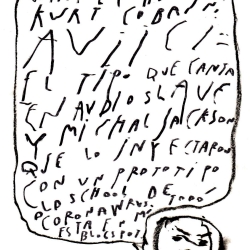 KURT COBAIN
AVICII
EL TIPO QUE CANTA
EN AUDIOSLAVE
Y MICHAL JACKSON
QSE LO INYECTARON
CON UN PROTOTIPO
OLD SCHOOL DE
CORONAVRUS. TODO
ESTA EN MI
BLOCSPOT